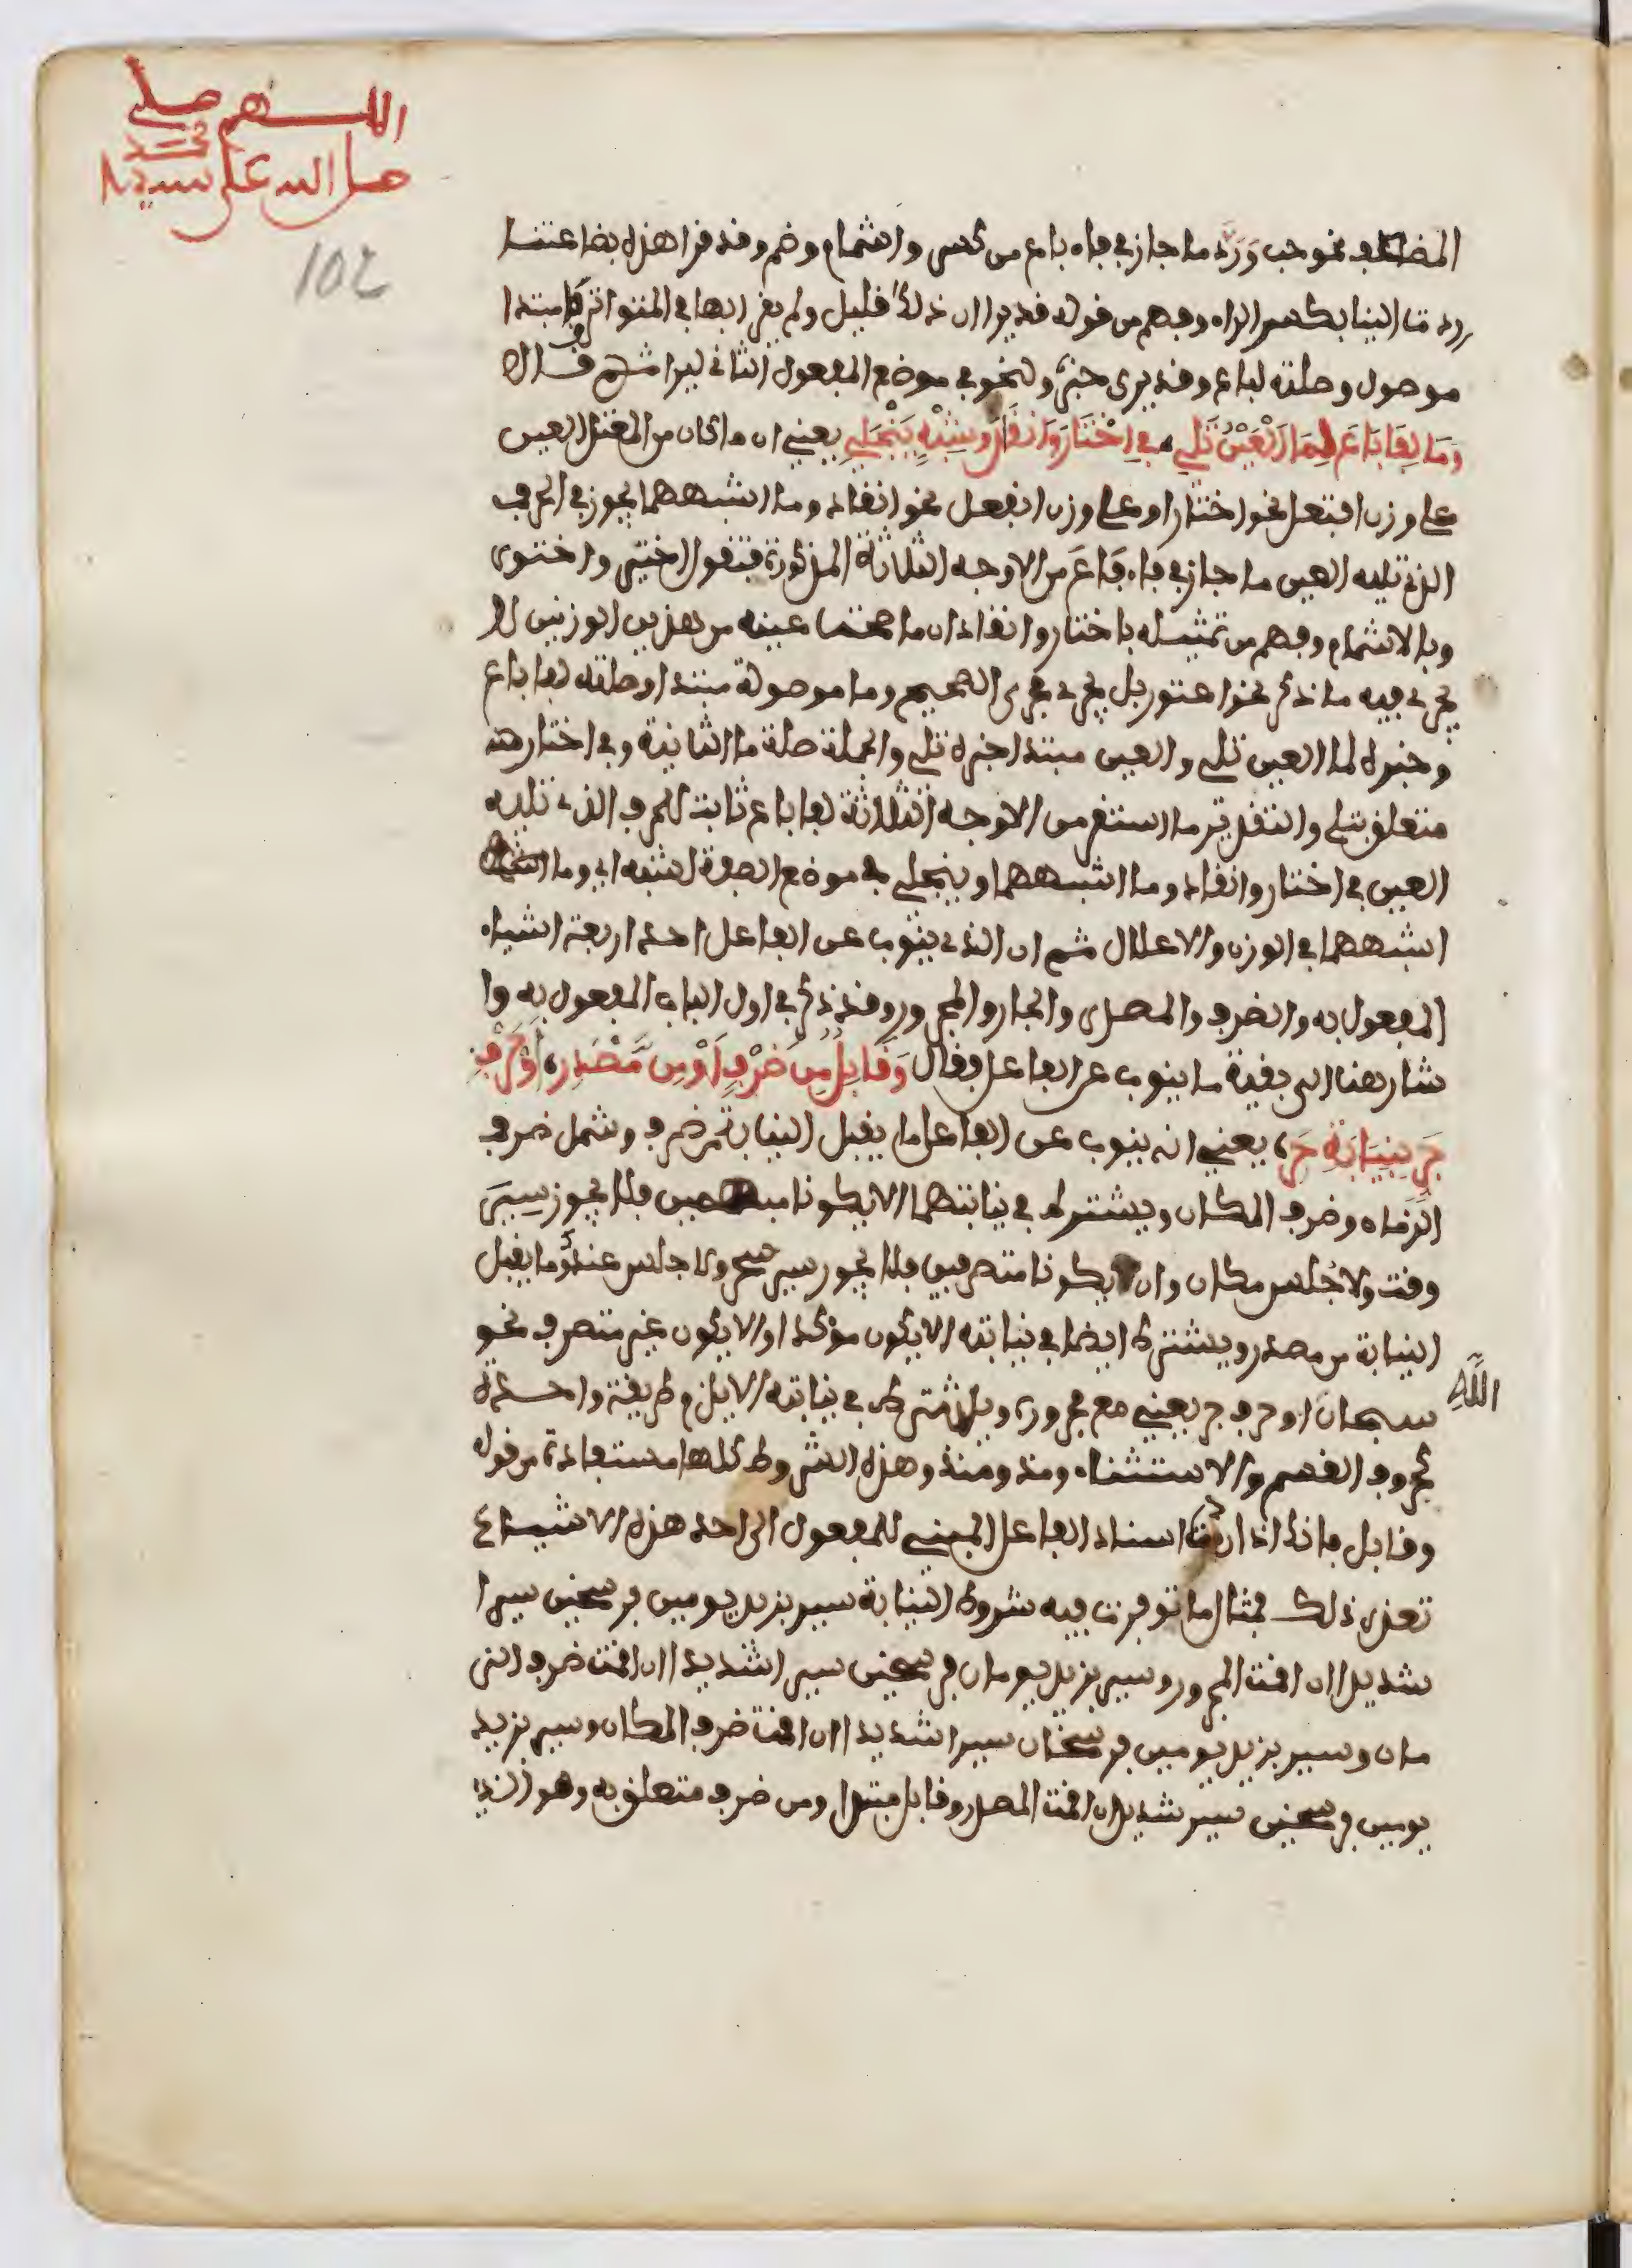 اللهم صلي
صل الله على سيدنا
محمد
102
المضاعف نحو حب ورد ما جاز في فاء باع من كسر واشمام وضم وقد قرا هذه بضاعتنا
ردت الينا بكسر الراء وفهم من قوله قد يرا ان ذلك قليل ولم يقرا بها في المتواتر وما مبتدا
موصول وصلته لباع وقد يرى خبر ولنحو في موضع المفعول الثاني ليرا ثم قال
وَمَا لِفَا بَاعَ لِمَا الْعَيْنُ تَلِي فِي اخْتَارَ وَانْقَادَ وَشِبْهٍ يَنْجَلِي يعني ان ما كان من المعتل العين
على وزن افتعل نحو اختار او على وزن انفعل نحو انقاد وما اشبههما يجوز في الحرف
الذي تليه العين ما جاز في فاء باع من الاوجه الثلاثة المذكورة فتقول اختير واختور
وبالاشمام وفهم من تمثيله باختار وانقاد ان ما صحت عينه من هذين الوزنين لا
يجري فيه ما ذكر نحو اعتور بل يجري مجرى الصحيح وما موصولة مبتدا وصلته لفا باع
وخبره لما العين تلي والعين مبتدا خبره تلي والجملة صلة ما الثانية وفي اختار
متعلق بتلي والتقدير ما استقر من الاوجه الثلاثة لفا باع ثابت للحرف الذي تليه
العين في اختار وانقاد وما اشبههما وينجلي في موضع الصفة لشبه اي وما
اشبههما في الوزن والاعلال ثم ان الذي ينوب عن الفاعل احد اربعة اشياء
المفعول به والضرف والمصدر والجار والمجرور وقد ذكر في اول الباب المفعول به وا
شار هنا الى بقية ما ينوب عن الفاعل فقال وَقَابِلٌ مِنْ ضَرْفٍ اَوْ مِنْ مَّصْدَرِ اَوْ حَرْفِ
جَرٍّ بِنِيَابَةٍ حَرِ يعني انه ينوب عن الفاعل ما يقبل النيابة من ضرف وشمل ضرف
الزمان وضرف المكان ويشترط في نيابتهما الا يكونا مبهمين فلا يجوز سير
وقت ولا جلس مكان وان يكونا متصرفين فلا يجوز سير سحر ولا جلس عندك وما يقبل
النيابة من مصدر ويشترط ايضا في نيابته الا يكون مؤكدا او الا يكون غير متصرف نحو
سبحان الله او حرف جر يعني مع مجروره ويشترط في نيابته الا يلزم طريقة واحدة
كحروف القسم والاستثناء ومذ ومنذ وهذه الشروط كلها مستفادة من قوله
وقابل فانك اذا اسناد الفاعل المبني للمفعول الى احد هذه الاشياء
تعذر ذلك فمثال ما توفرت فيه شروط النيابة سير بزيد يومين فرسخين سيرا
شديدا ان اقمت المجرور وسير بزيد يومان فرسخين سيرا شديدا ان اقمت ضرف الز
مان وسير بزيد يومين فرسخان سيرا شديدا ان اقمت ضرف المكان وسير بزيد
يومين فرسخين سير شديد ان اقمت المصدر وقابل مبتدا ومن ضرف متعلق به وهو الذي